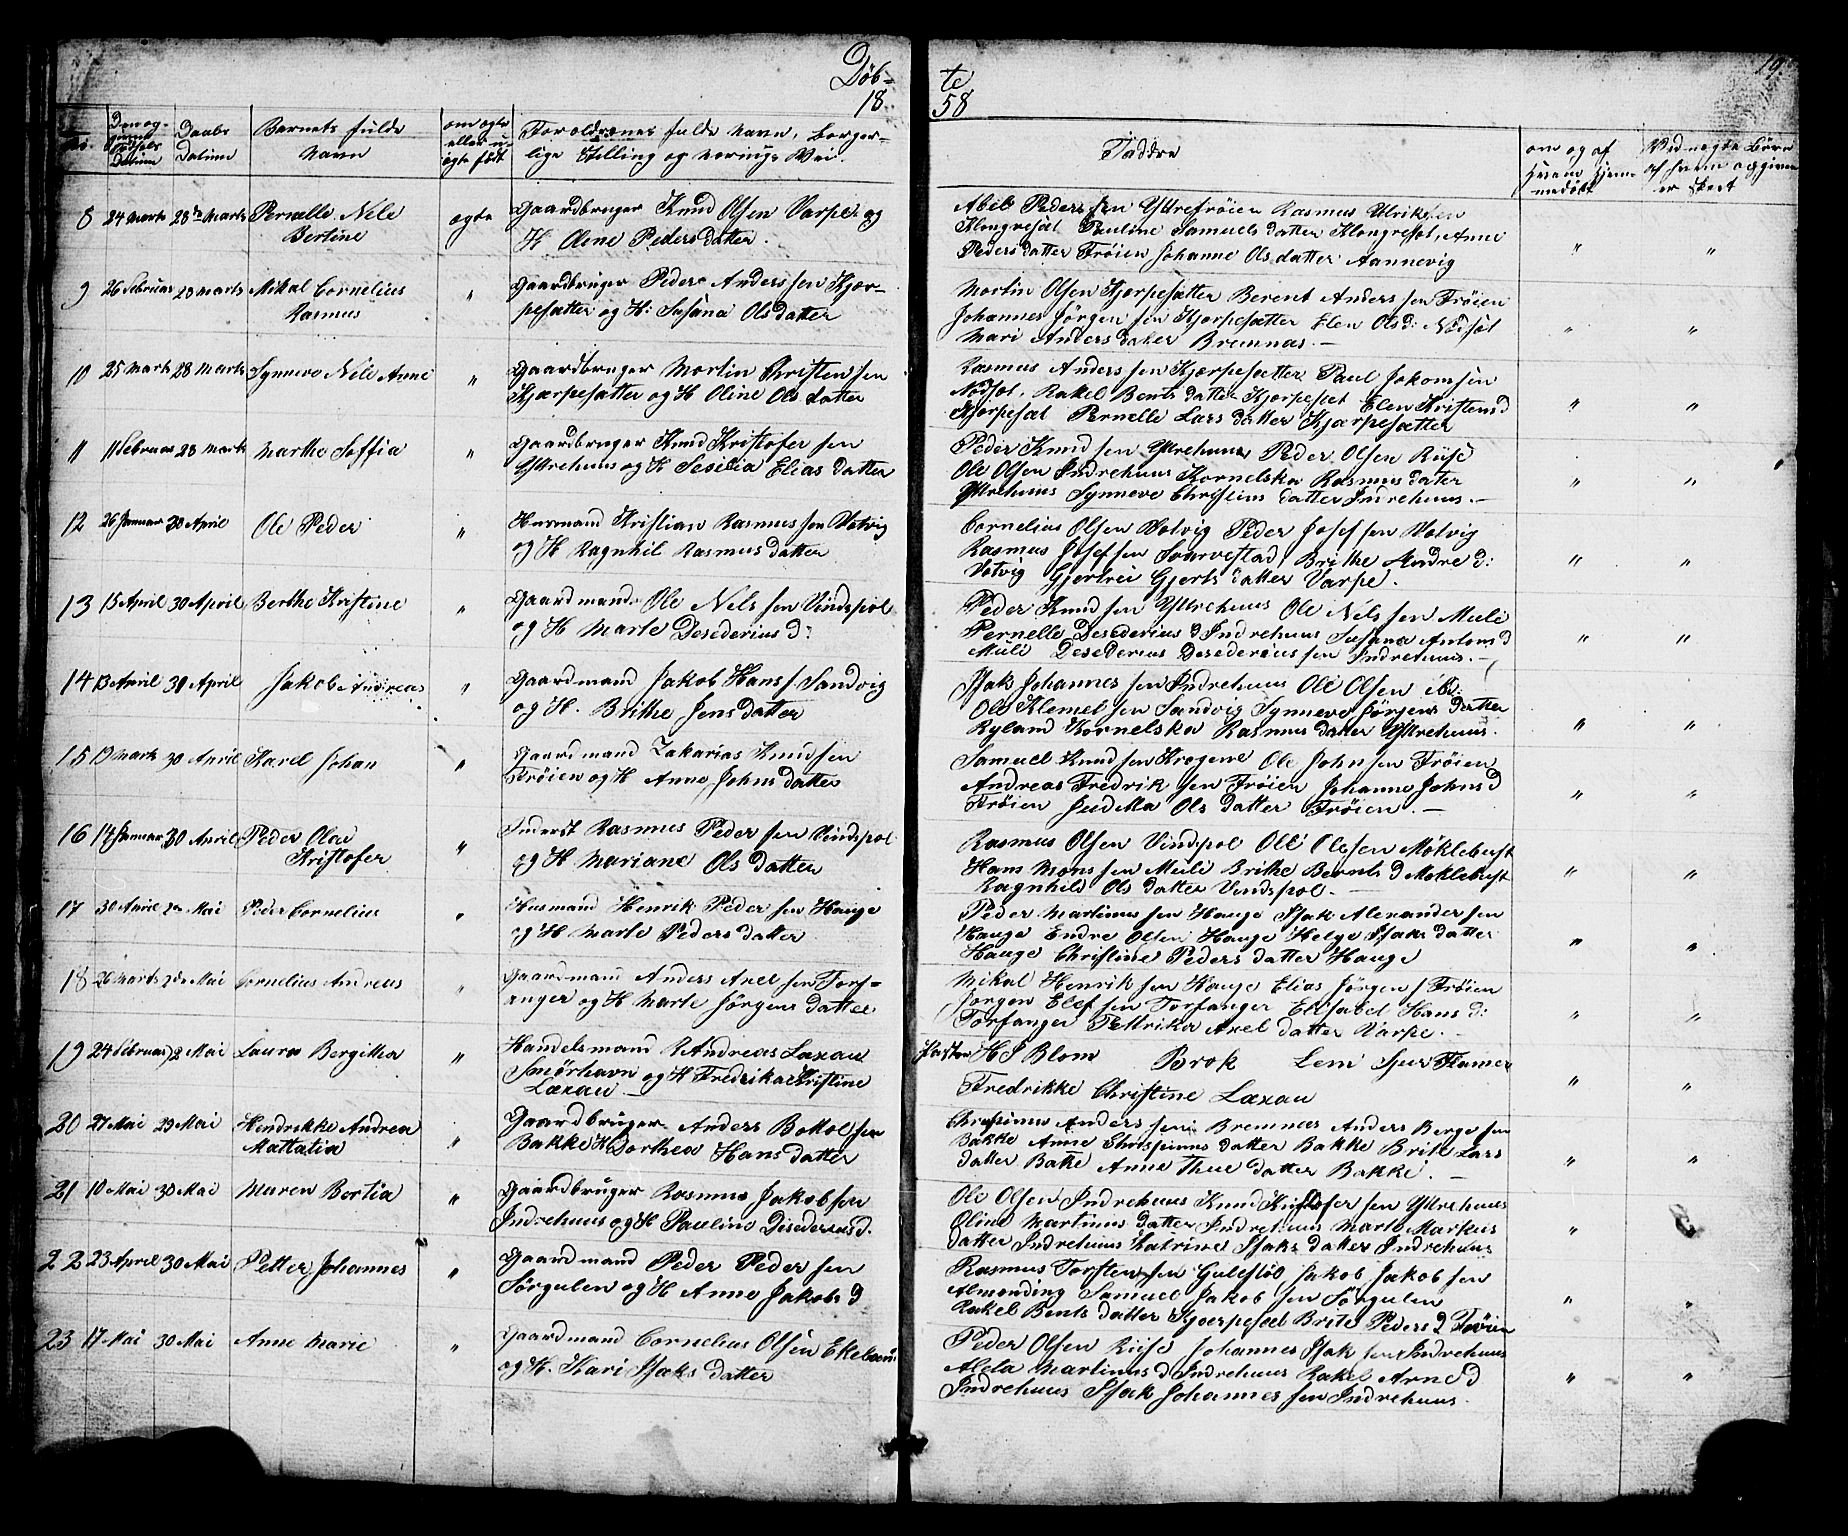 Döb-
18
te
58
19
No.
Dag og
Fødsels
Datum
Daabs
Datum
Barnets fulde
Navn
om ægte
eller u-
ægte født
Foroldrenes fulde Navn, Borger-
lige Stilling og nærings Vei.
Faddre
om og af
hvem hjemme
medøbt
8 24 Marts 28de Marts Pernelle Nile
Bertine
ægte
Gaardbruger Knud Olsen Varpe og
H Olene Pedersdatter.
Abel Pedersen Yttrefröien Rasmus Ulriksen
Klongresøt Pauline Samuels datter Klongresøt, Anne
Peders datter Fröien Johanne Olsdatter Aannevig
" "
9 26 Februar 28 Marts Mikal Cornelius
Rasmus
"
Gaardbruger Peder Anderssen Kjær-
pesætter og H: Susana Olsdatter
Martin Olsen Kjærpesætter Berent Anders sen Fröien
Johannes Jörgen sen Kjærpesætter Elen Olsd: Nødsøt
Mari Anders datter Bremnæs. —
" "
10 25 Marts 28 Marts Synneve Nile Anne
"
Gaardbruger Martin Christen sen
Kjærpesætter og H Oline Ols datter
Rasmus Anders sen Kjærpesætter Paul Jokomsen
Nødsøt, Rakel Bents datter Kjærpesæt Elen Kristens d
Kjærpesæt Pernelle Lars datter Kjærpesætter
" "
11 11 Februar 28 Mark Marthe Soffia
"
Gaardbruger Knud Kristofer sen
Yttrehuus og H Sesilia Elias datter
Peder Knud sen Yttrehuus Peder Olsen Riise
Ole Olsen Indrehuus Kornelska Rasmus datter
Yttrehuus Synneve Christins datter Indrehuus. —
" "
12 26 Januar 30 April Ole Peder
"
Husmand Kristian Rasmus sen Votvig
og H Ragnhil Rasmus datter
Cornelius Olsen Votvig Peder Josef sen Votvig
Rasmus Josef sen Saurvestad, Brithe Andre d:
Votvig Gjertrei Gjerts datter Varpe.
" "
13 15 April 30 April Berthe Kristine
"
Gaardmand Ole Nels sen Vindspol
og H Marte Desederius d:
Peder Knud sen Yttrehuus Ole Nels sen Mule
Pernelle Desederius d Indrehuus Susana Antons d
Muli Desederius Desederius sen Indrehuus. —
" "
14 13 April 30 April Jakob Andreas
"
Gaardmand Jakob Hans s. Sandvig
og H. Brithe Jens datter
Isak Johannes sen Indrehuus Ole Olsen ibd:
Ole Klemet sen Sandvig Synneve Jörgens datter
Ryland Kornelska Rasmus datter Yttrehuus.
" "
15 19 Mark 30 April Karel Johan
"
Gaardmand Zakarias Knudsen
Fröien og H Anne Johns datter
Samuel Knud sen Krogene Ole John sen Fröien
Andreas Fredrik sen Fröien Johanne Johns d
Fröien Ols datter Fröien. —
" "
16 14 Januar 30 April Peder Olai
Kristofer
"
Inderst Rasmus Peder sen Vindspol
og H Mariane Ols datter
Rasmus Olsen Vindspol Ole Olesen Möklebust
Hans Mons sen Mule Brithe Bernts d Möklebust
Ragnhild Ols datter Vindspol. —
" "
17 30 April 2den Mai Peder Cornelius
"
Husmand Henrik Peder sen Hauge
og H Marte Peders datter
Peder Martinus sen Hauge Isak Alexander sen
Hauge Endre Olsen Hauge Helge Isaks datter
Hauge Christine Peders datter Hauge
" "
18 26 Marts 2de Mai Cornelius Andreas
"
Gaardmand Anders Axel sen Torf-
anger og H Marte Jörgens datter
Mikal Henrik sen Hauge Elias Jörgen s Fröien
Jörgen Elef sen Torfanger Elisabet Hans d:
Torfanger Pettrika Axel datter Varpe. —
" "
19 24 Februar 2 Mai Laura Bergitha
"
Handelsmand Andreas Laxau
Smörhavn og H Fredrika Kristine
Laxau —
H S Blom Brok Lem Flamer
Fredrikke Christine Laxau
" "
20 27 Mai 29 Mai Hendrikke Andrea
Mattatia
"
Gaardbruger Anders Botolsen
Bakke H Dorthea Hans datter
Chrispinus Anders sen Bremnæs Anders Berge sen
Bakke Anne Chrispinus datter Bakke Brite Lars
datter Bakke Anne Thue datter Bakke. —
" "
21 10 Mai 30 Mai Maren Bertia
"
Gaardbruger Rasmus Jakob sen
Indrehuus og H Pauline Disederius d.
Ole Olsen Indrehuus Knud Kristofer sen Yttrehuus
Oline Martinus datter Indrehuus Marte Markus
datter Indrehuus Katrine Isaks datter Indrehuus
"
22 23 April 30 Mai Petter Johannes
"
Gaardmand Peder Peder sen
Sörgulen og H Anne Jakobs d
Rasmus Torsten sen Guleslöt Jakob Jakob sen
Almending Samuel Jakob sen Sörgulen
Rakel Bents datter Kjærpesæt Brite Peders d Fröien
" "
23 17 Mai 30 Mai Anne Marie
"
Gaardmand Cornelius Olsen
og H. Kari Isaks datter
Peder Olsen Riise Johannes Isak sen Indrehuus
Alela Martinus d Indrehuus Rakel Arne d
Indrehuus Isak Johannes sen Indrehuus.
" "